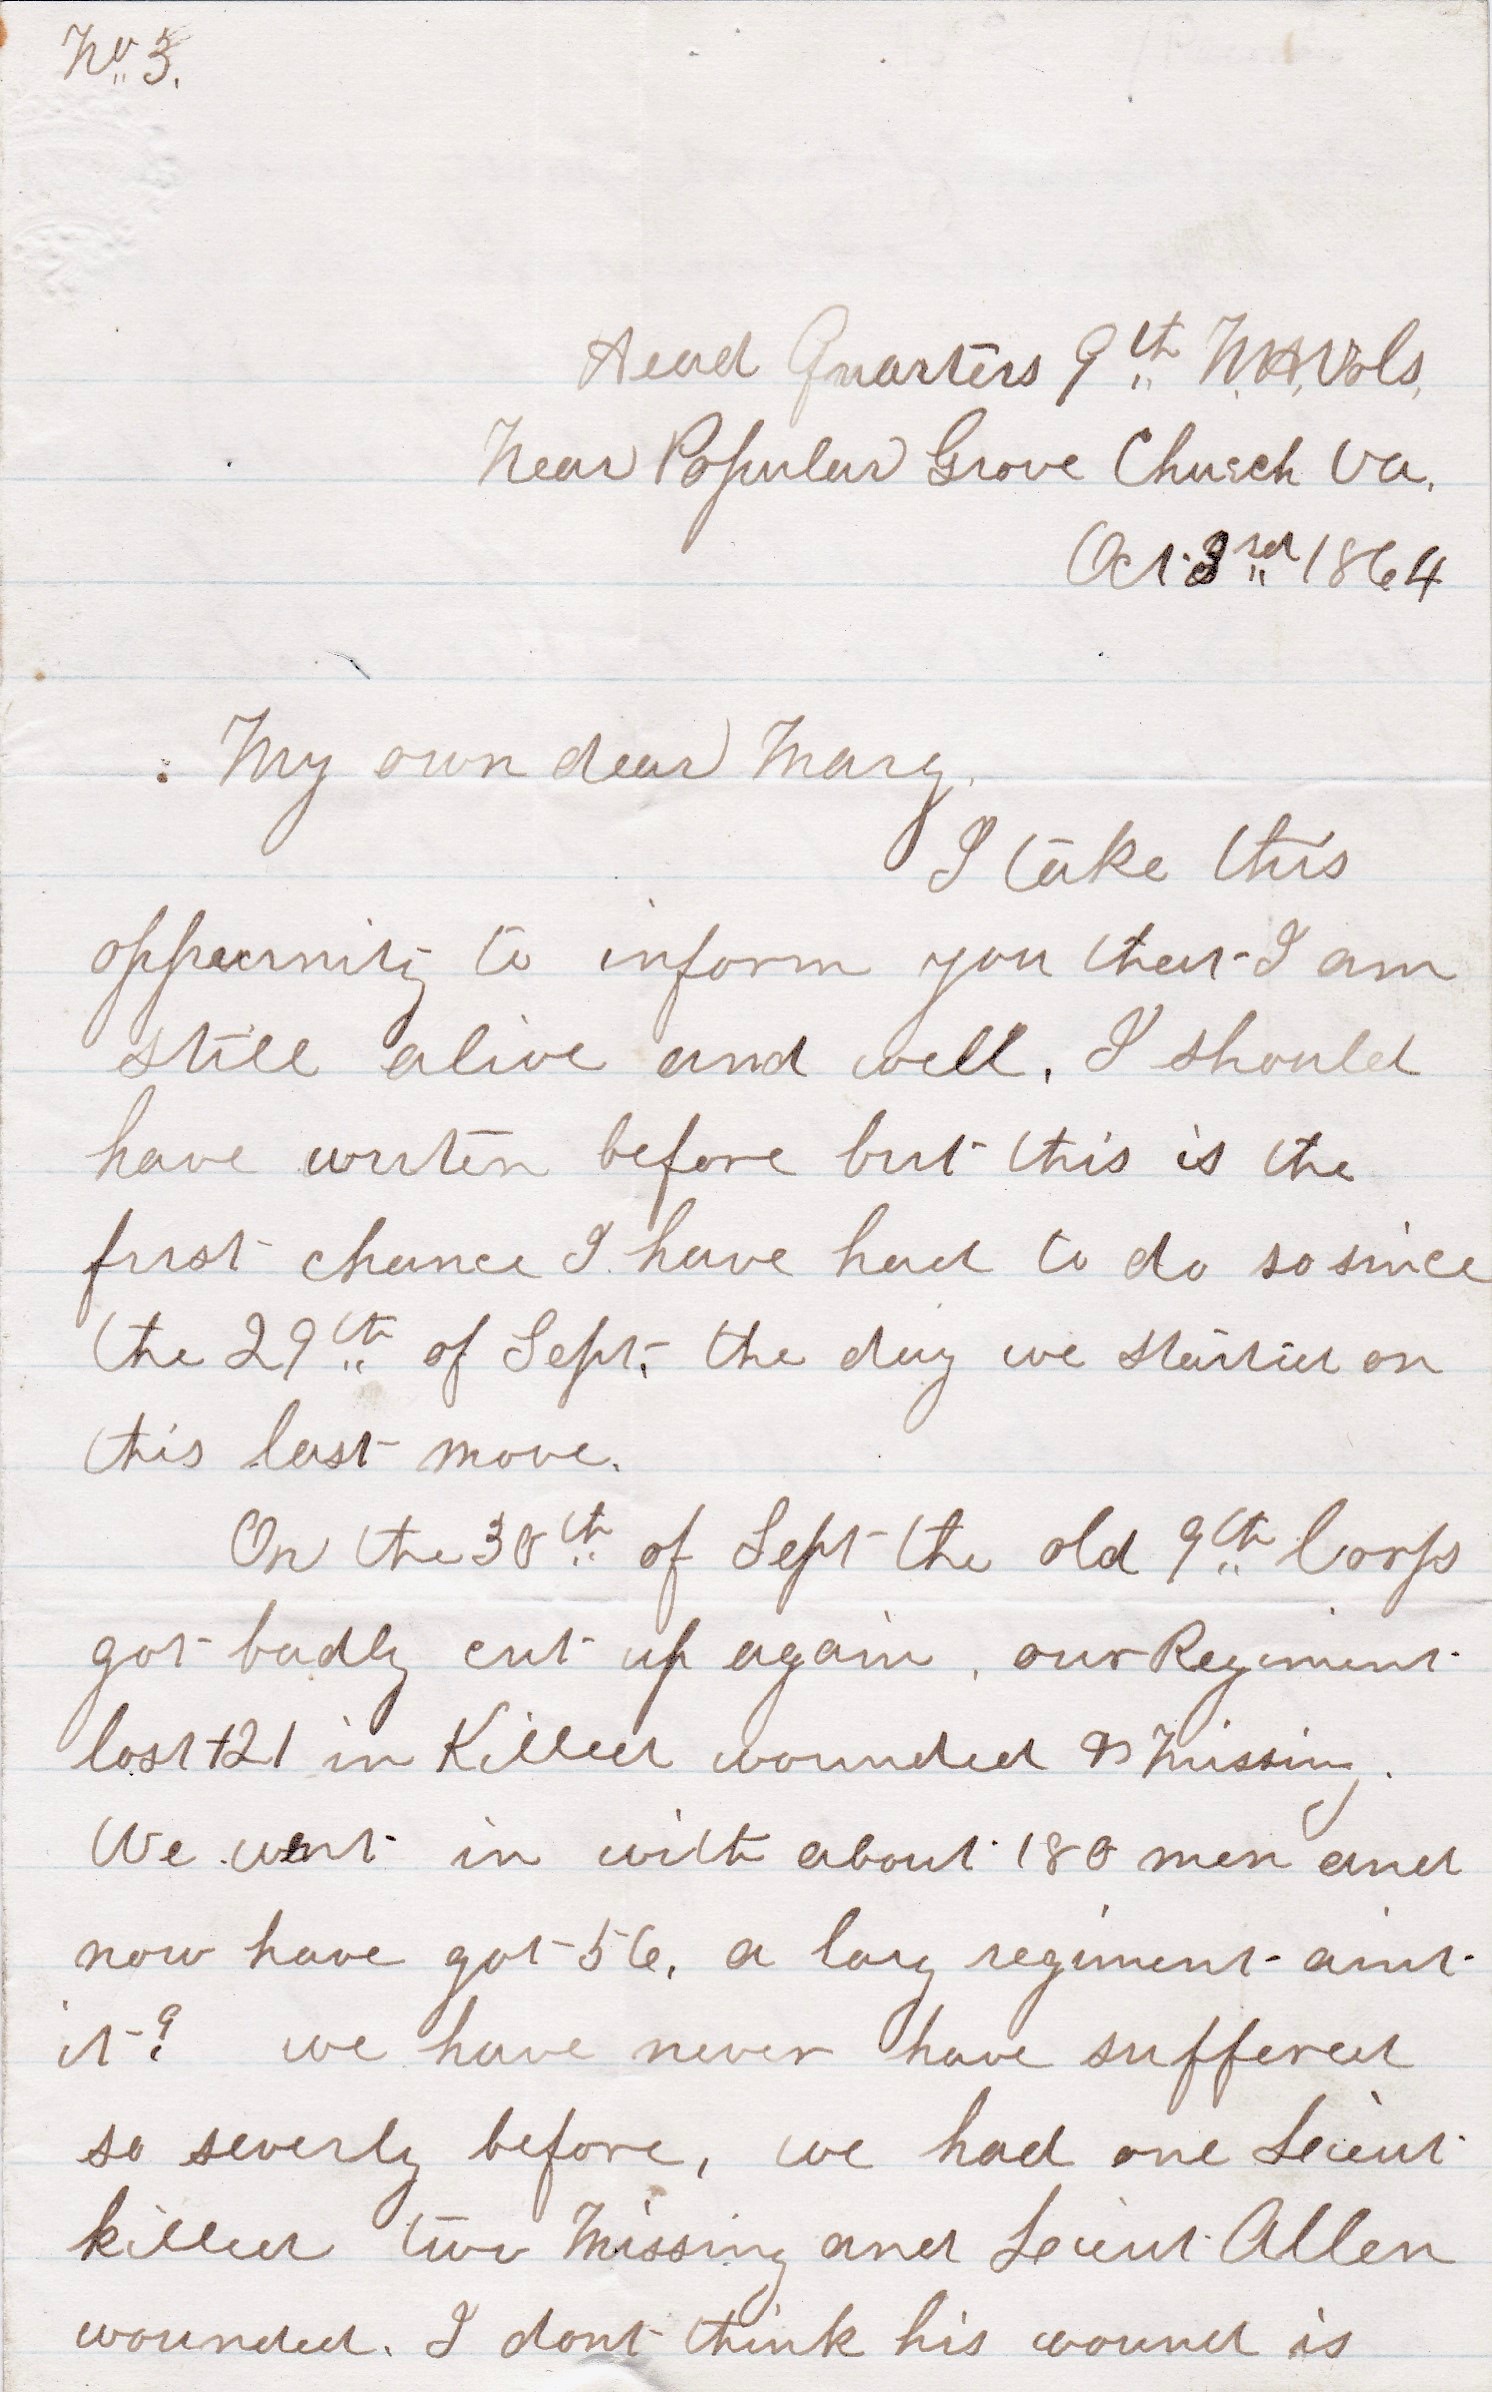 No 3.
Head Quarters 9th N.H. Vols,
Near Popular Grove Church Va.
Oct. 3rd 1864
My own dear Mary.
I take this
oppeurnity to inform you that I am
still alive and well. I should
have writen before but this is the
first chance I have had to do so since
the 29th of Sept. the day we started on
this last move.
On the 30th of Sept the old 9th Corps
got badly cut up again, our Regiment
lost 121 in Killed wounded & Missing.
We went in with about 180 men and
now have got 56, a larg regiment aint
it? we have never have suffered
so severly before, we had one Leiut
killed two Missing and Leiut. Allen
wounded. I dont think his wound is